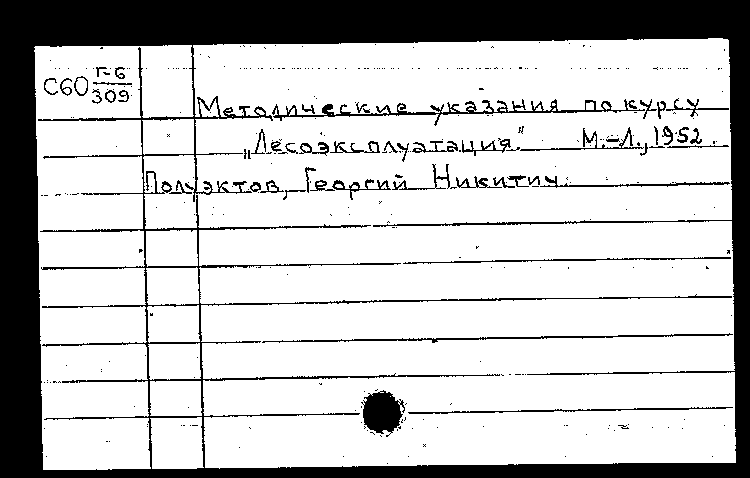 С60 Г-6/309
Методические указания по курсу
„Лесоэксплуатация." М.-Л., 1952.
Полуэктов, Георгий Никитич.